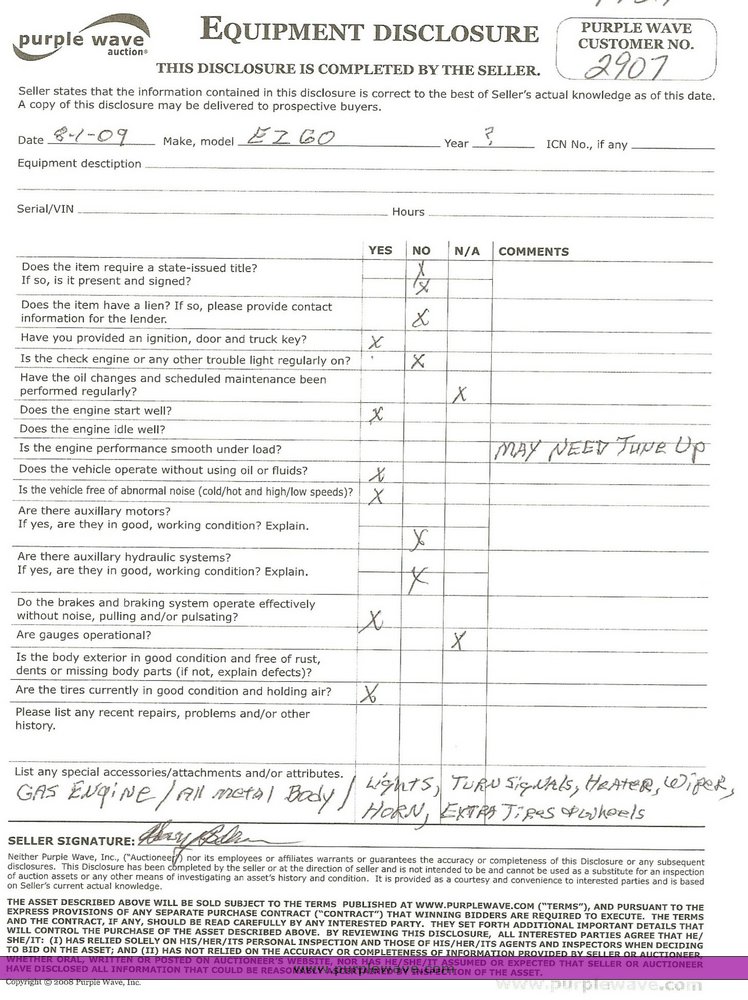 purple wave
auction®
EQUIPMENT DISCLOSURE
PURPLE WAVE
CUSTOMER NO.
2907
THIS DISCLOSURE IS COMPLETED BY THE SELLER.
Seller states that the information contained in this disclosure is correct to the best of Seller's actual knowledge as of this date.
A copy of this disclosure may be delivered to prospective buyers.
Date 8-1-09 Make, model EZ GO Year ? ICN No., if any
Equipment desctiption
Serial/VIN Hours
YES NO N/A COMMENTS
Does the item require a state-issued title? X
If so, is it present and signed? X
Does the item have a lien? If so, please provide contact
information for the lender. X
Have you provided an ignition, door and truck key? X
Is the check engine or any other trouble light regularly on? X
Have the oil changes and scheduled maintenance been
performed regularly? X
Does the engine start well? X
Does the engine idle well?
Is the engine performance smooth under load? MAY NEED TUNE UP
Does the vehicle operate without using oil or fluids? X
Is the vehicle free of abnormal noise (cold/hot and high/low speeds)? X
Are there auxillary motors?
If yes, are they in good, working condition? Explain. X
Are there auxillary hydraulic systems?
If yes, are they in good, working condition? Explain. X
Do the brakes and braking system operate effectively
without noise, pulling and/or pulsating? X
Are gauges operational? X
Is the body exterior in good condition and free of rust,
dents or missing body parts (if not, explain defects)?
Are the tires currently in good condition and holding air? X
Please list any recent repairs, problems and/or other
history.
List any special accessories/attachments and/or attributes.
GAS Engine / All metal Body / Lights, TURN SigNAls, HeATer, Wiper,
HORN, EXTRA Tires & wheels
SELLER SIGNATURE:
Neither Purple Wave, Inc., ("Auctioneer") nor its employees or affiliates warrants or guarantees the accuracy or completeness of this Disclosure or any subsequent
disclosures. This Disclosure has been completed by the seller or at the direction of seller and is not intended to be and cannot be used as a substitute for an inspection
of auction assets or any other means of investigating an asset's history and condition. It is provided as a courtesy and convenience to interested parties and is based
on Seller's current actual knowledge.
THE ASSET DESCRIBED ABOVE WILL BE SOLD SUBJECT TO THE TERMS PUBLISHED AT WWW.PURPLEWAVE.COM ("TERMS"), AND PURSUANT TO THE
EXPRESS PROVISIONS OF ANY SEPARATE PURCHASE CONTRACT ("CONTRACT") THAT WINNING BIDDERS ARE REQUIRED TO EXECUTE. THE TERMS
AND THE CONTRACT, IF ANY, SHOULD BE READ CAREFULLY BY ANY INTERESTED PARTY. THEY SET FORTH ADDITIONAL IMPORTANT DETAILS THAT
WILL CONTROL THE PURCHASE OF THE ASSET DESCRIBED ABOVE. BY REVIEWING THIS DISCLOSURE, ALL INTERESTED PARTIES AGREE THAT HE/
SHE/IT: (I) HAS RELIED SOLELY ON HIS/HER/ITS PERSONAL INSPECTION AND THOSE OF HIS/HER/ITS AGENTS AND INSPECTORS WHEN DECIDING
TO BID ON THE ASSET; AND (II) HAS NOT RELIED ON THE ACCURACY OR COMPLETENESS OF INFORMATION PROVIDED BY SELLER OR AUCTIONEER,
WHETHER ORAL, WRITTEN OR POSTED ON AUCTIONEER'S WEBSITE, NOR HAS HE/SHE/IT ASSUMED OR EXPECTED THAT SELLER OR AUCTIONEER
HAVE DISCLOSED ALL INFORMATION THAT COULD BE ASCERTAINED BY INSPECTION OF THE ASSET.
www.purplewave.com
Copyright © 2008 Purple Wave, Inc.
www.purplewave.com